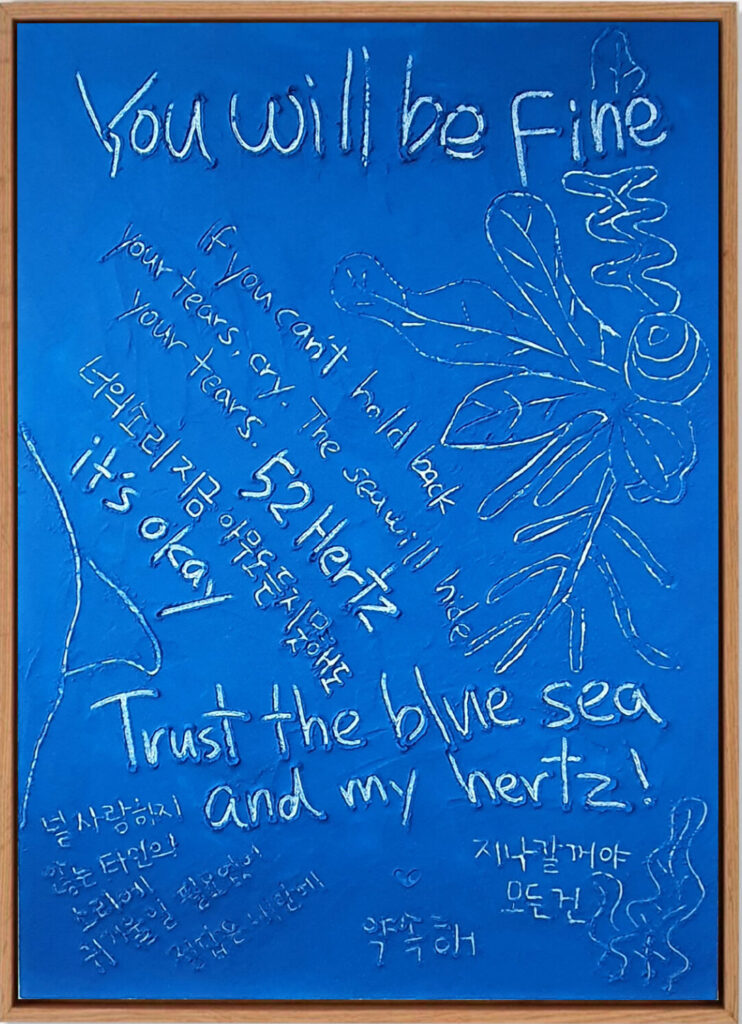 You will be fine
If you can't hold back
your tears, cry. The sea will hide
your tears.
52 Hertz
너의 소리 지금 아무도 듣지 못해도
it's okay
Trust the blue sea
and my hertz!
널 사랑하지
않는 타인의
소리에
귀 기울일 필요없어
정답은 네 안에
지나갈꺼야
모든건
약속해